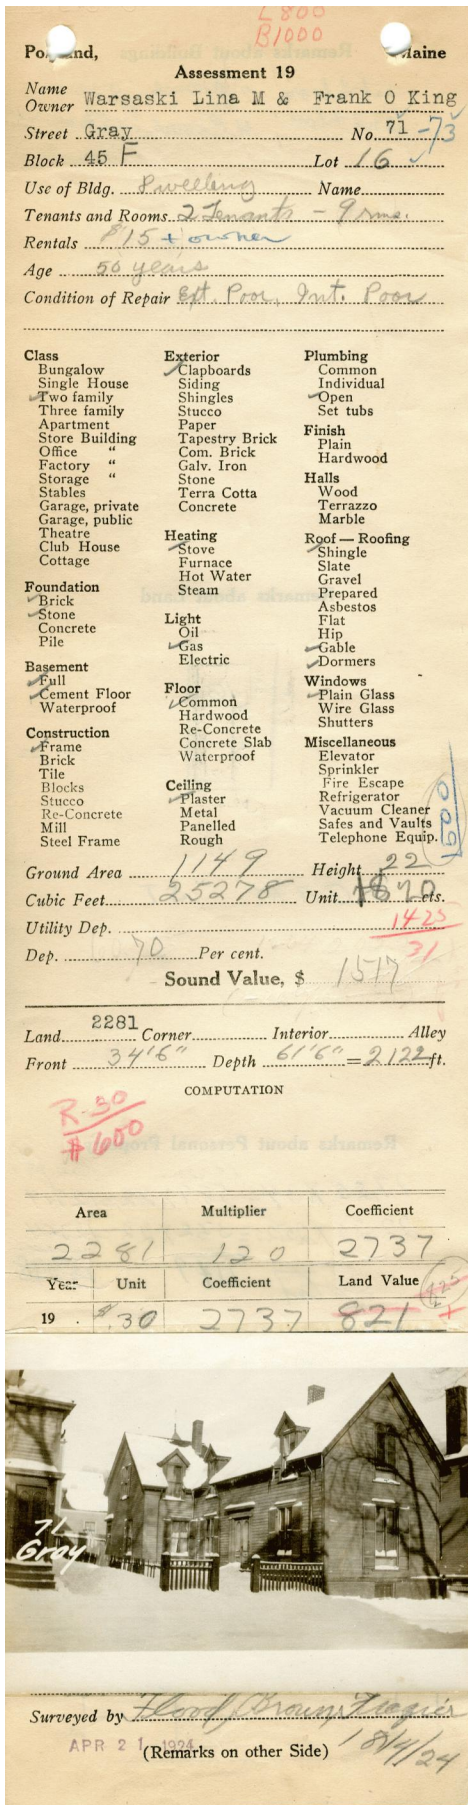 L 800
B1000
Po nd, Maine
Assessment 19
Name
Owner Warsaski Lina M & Frank O King
Street Gray No. 71 -73
Block 45 F Lot 16
Use of Bldg. Dwelling Name
Tenants and Rooms 2 Tenants - 9 rms.
Rentals $15 + owner
Age 50 years
Condition of Repair Ext. Poor, Int. Poor
Class
Bungalow
Single House
Two family
Three family
Apartment
Store Building
Office "
Factory "
Storage "
Stables
Garage, private
Garage, public
Theatre
Club House
Cottage
Foundation
Brick
Stone
Concrete
Pile
Basement
Full
Cement Floor
Waterproof
Construction
Frame
Brick
Tile
Blocks
Stucco
Re-Concrete
Mill
Steel Frame
Exterior
Clapboards
Siding
Shingles
Stucco
Paper
Tapestry Brick
Com. Brick
Galv. Iron
Stone
Terra Cotta
Concrete
Heating
Stove
Furnace
Hot Water
Steam
Light
Oil
Gas
Electric
Floor
Common
Hardwood
Re-Concrete
Concrete Slab
Waterproof
Ceiling
Plaster
Metal
Panelled
Rough
Plumbing
Common
Individual
Open
Set tubs
Finish
Plain
Hardwood
Halls
Wood
Terrazzo
Marble
Roof — Roofing
Shingle
Slate
Gravel
Prepared
Asbestos
Flat
Hip
Gable
Dormers
Windows
Plain Glass
Wire Glass
Shutters
Miscellaneous
Elevator
Sprinkler
Fire Escape
Refrigerator
Vacuum Cleaner
Safes and Vaults
Telephone Equip.
Ground Area 1149 Height 22
Cubic Feet 25278 Unit cts.
Utility Dep. 1425
31
Dep. 70 Per cent.
Sound Value, $ 1517
Land 2281 Corner Interior Alley
Front 34'6" Depth 61'6" = 2122 ft.
COMPUTATION
R-30
$600
Area Multiplier Coefficient
2281 120 2737
Year Unit Coefficient Land Value 425
19 . $.30 2737 821
71
Gray
Surveyed by Flood, Brown, Frazier
APR 21 1924
(Remarks on other Side)